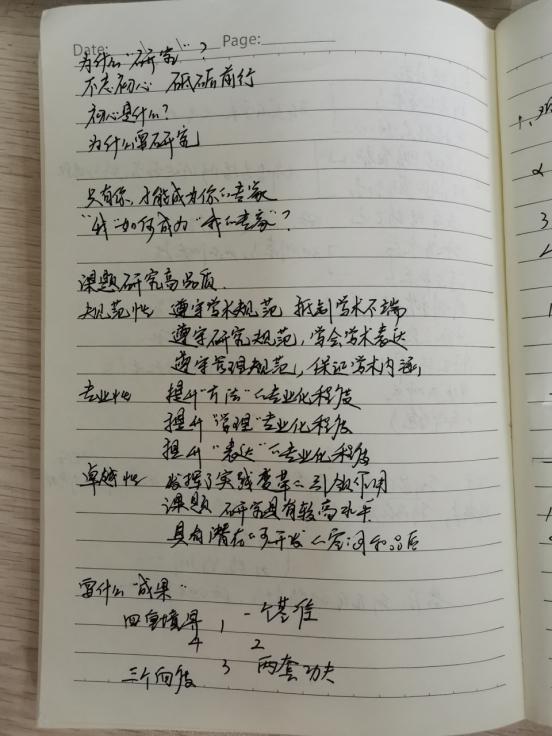 Date: Page:
为什么"研究"?
不忘初心 砥砺前行
初心是什么?
为什么要研究
只有你,才能成为你的专家
"我"如何成为"我的专家"?
课题研究高品质.
规范性 遵守学术规范,抵制学术不端
遵守研究规范,学会学术表达
遵守管理规范,保证学术内涵
专业性 提升"方法"的专业化程度
提升"管理"专业化程度
提升"表达"的专业化程度
卓越性 发挥了实践变革的引领作用
课题研究具有较高水平
具有潜在的可开发的空间和品质
要什么"成果"
四重境界 1 一个基准
4 2
三个向度 3 两套功夫